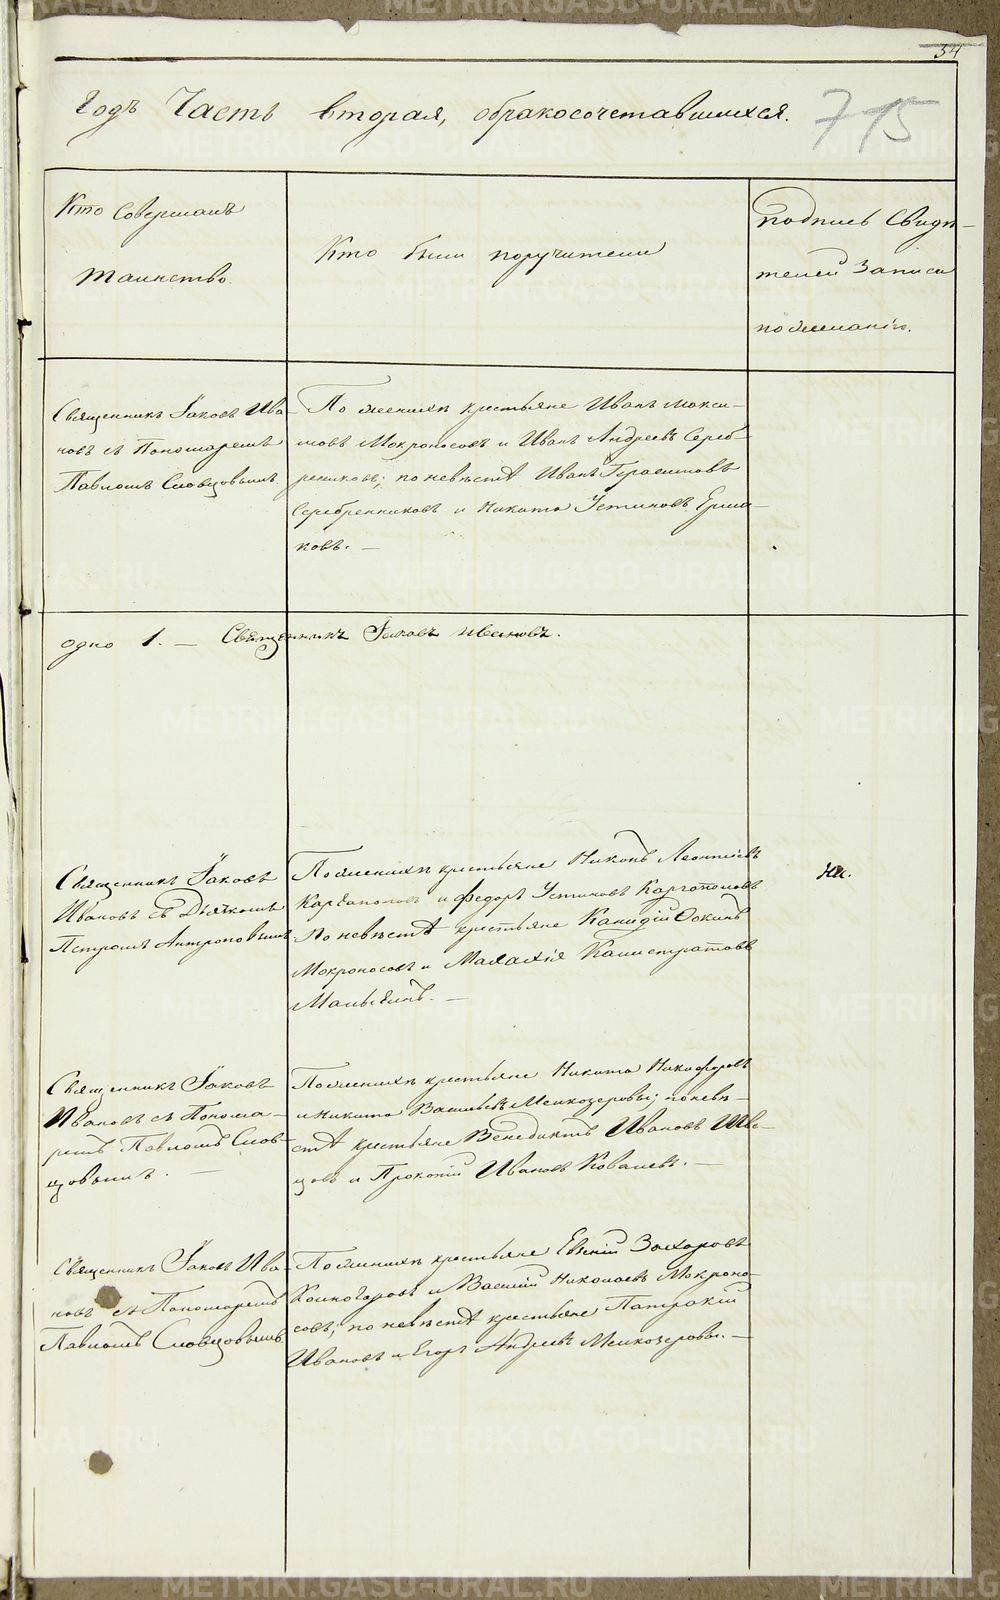 34
Годъ Часть вторая, обракосочетавшихся.
715
Кто совершалъ
таинство.
Кто были поручители
подпись свидѣ-
телей записи
по желанію.
Священникъ Іаковъ Ива-
новъ съ Пономаремъ
Павломъ Словцовымъ
По женихѣ крестьяне Иванъ Макси-
мовъ Мокроносовъ и Иванъ Андреевъ Сереб-
рениковъ; по невѣстѣ Иванъ Герасимовъ
Серебренниковъ и Никита Устиновъ Ерма-
ковъ. —
одно 1. — Священникъ Іаковъ Ивановъ.
Священникъ Іаковъ
Ивановъ съ Дьячкомъ
Петромъ Антроповымъ
По женихѣ крестьяне Никонъ Леонтіевъ
Каргаполовъ и Федоръ Устиновъ Каргополовъ
По невѣстѣ крестьяне Кандидій Фокинъ
Мокроносовъ и Малахія Калистратовъ
Мальгинъ. —
Священникъ Іаковъ
Ивановъ съ Понома-
ремъ Павломъ Слов-
цовымъ. —
По женихѣ крестьяне Никита Никифоровъ
и Никита Васильевъ Мелкозеровы; по невѣ-
стѣ крестьяне Венедиктъ Ивановъ Шве-
цовъ и Прокопій Ивановъ Ковалевъ. —
Священникъ Іаковъ Ива-
новъ съ Пономаремъ
Павломъ Словцовымъ
По женихѣ крестьяне Евгеній Захаровъ
Коногоровъ и Василій Николаевъ Мокроно-
совъ; по невѣстѣ крестьяне Патракій
Ивановъ и Егоръ Андреевъ Мелкозеровы. —
METRIKI.GASO-URAL.RU